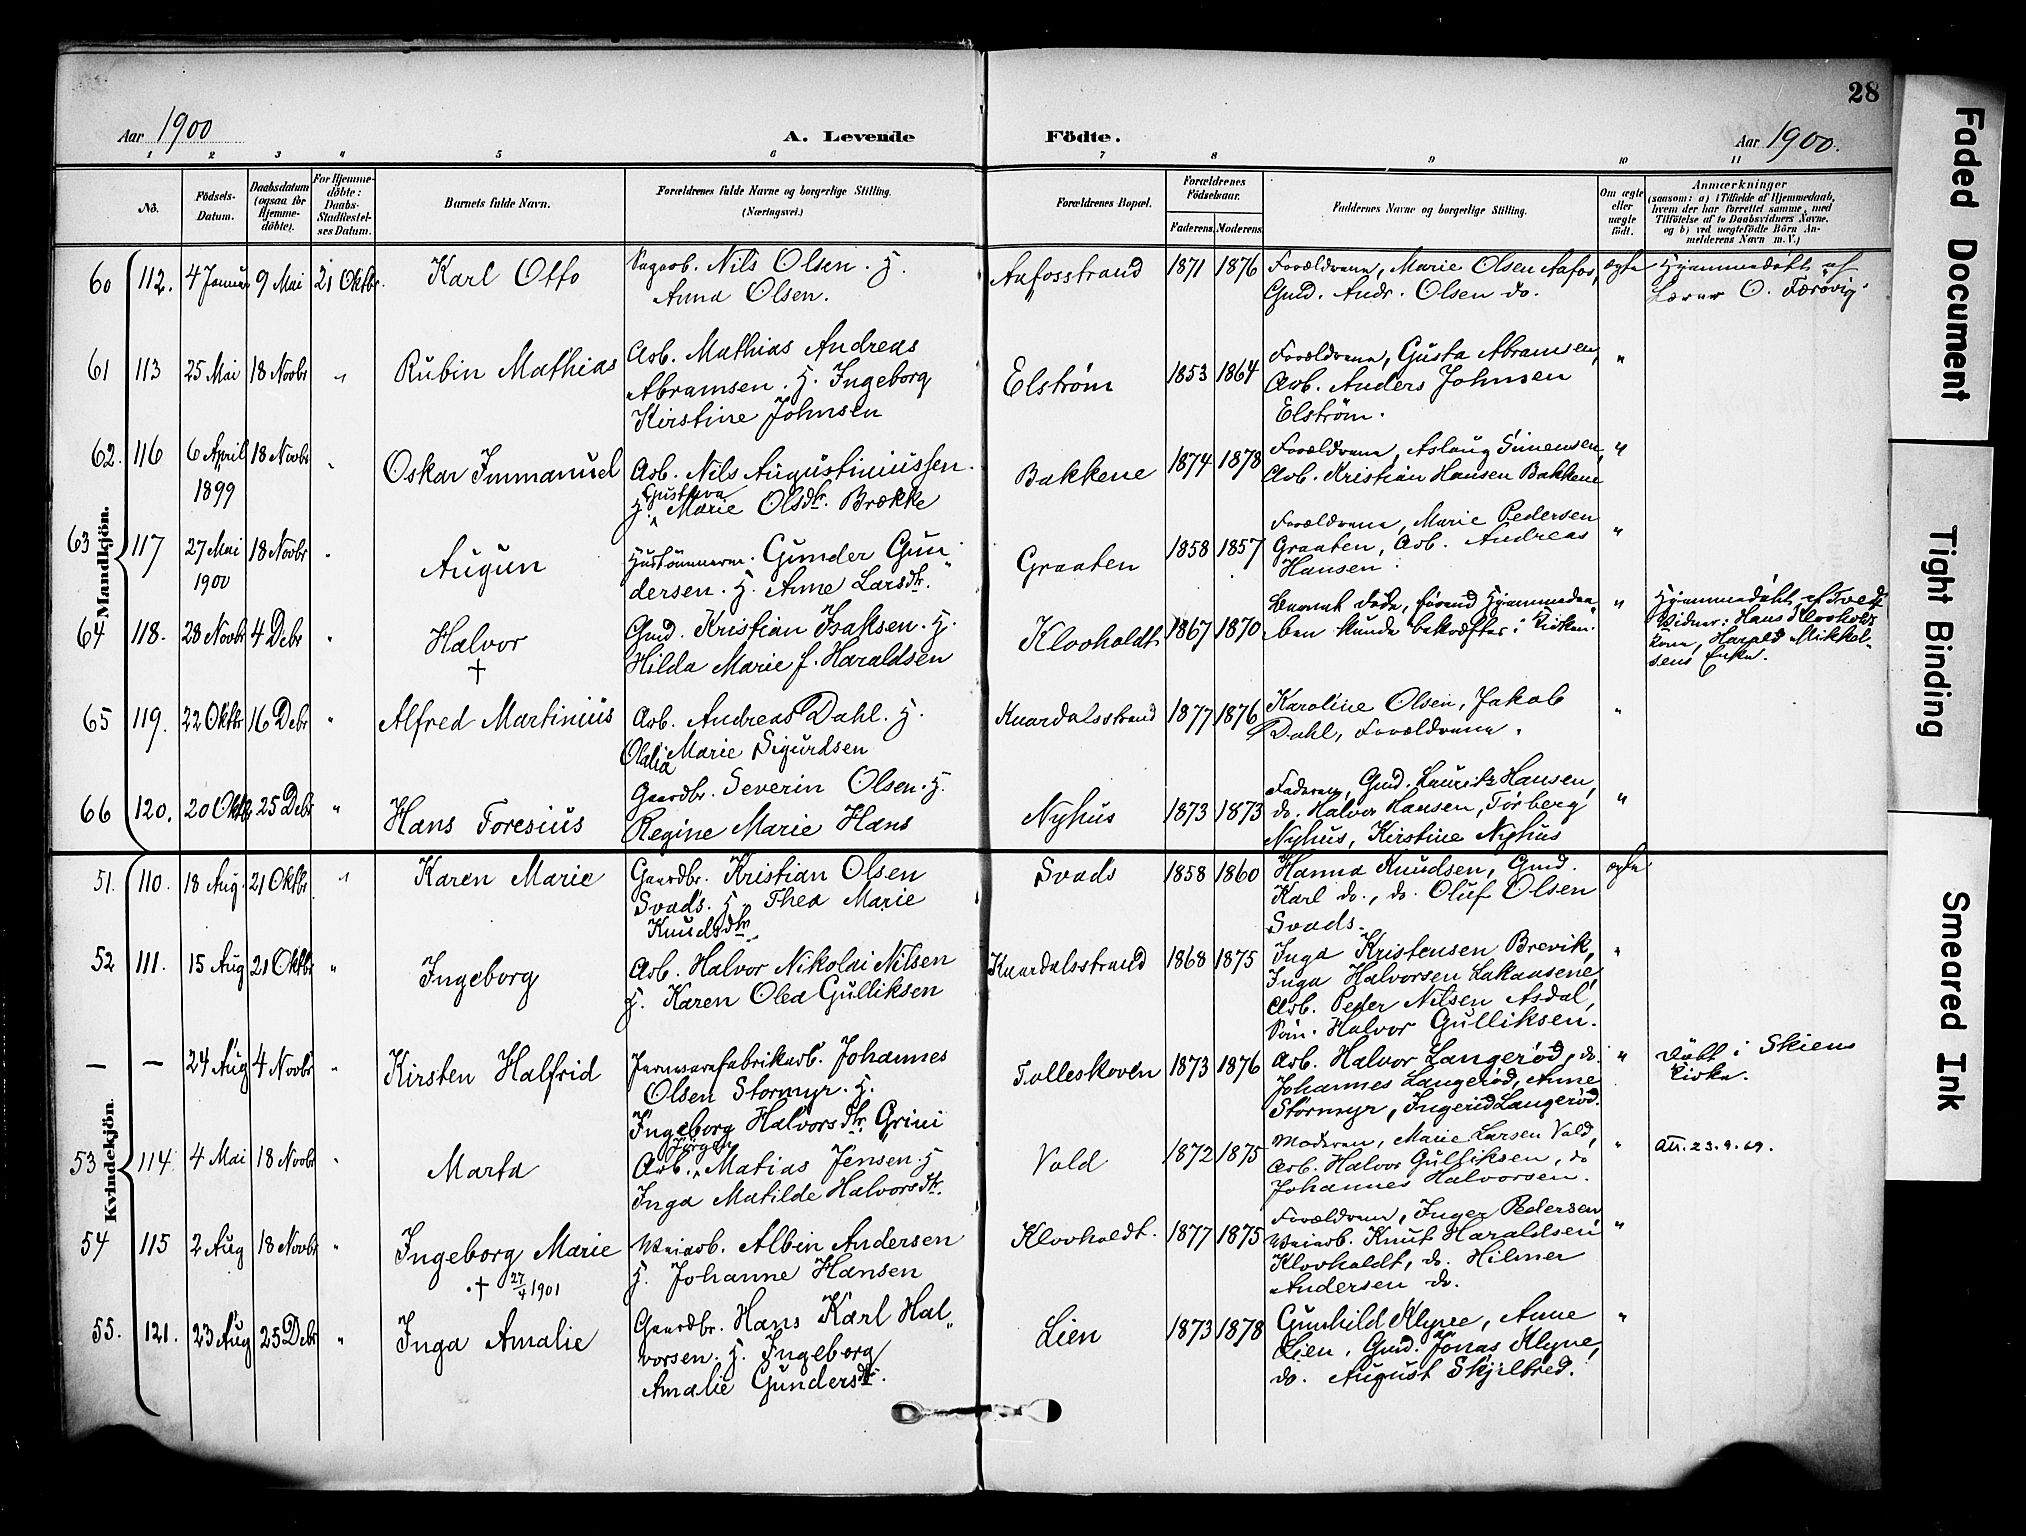 28
Aar 1900
A. Levende
Födte.
Aar 1900.
1 2 3 4 5 6 7 8 9 10 11
No.
Födsels-Datum.
Daabsdatum (ogsaa for Hjemme-döbte).
For Hjemme-döbte: Daabs-Stadfæstel-ses Datum.
Barnets fulde Navn.
Forældrenes fulde Navne og borgerlige Stilling.
(Næringsvei.)
Forældrenes Bopæl.
Forældrenes Födselsaar.
Faderens. Moderens.
Faddernes Navne og borgerlige Stilling.
Om ægte eller uægte födt.
Anmærkninger
(saasom: a) i Tilfælde af Hjemmedaab,
hvem der har forrettet samme, med
Tilföielse af to Daabsvidners Navne.
og b) ved uægtefödte Börn An-
melderens Navn m. V.)
Mandkjön.
60 112. 4 Januar 9 Mai 21 Oktbr. Karl Otto
Sagarb. Nils Olsen. H.
Anna Olsen.
Aafosstrand 1871 1876
Forældrene, Marie Olsen Aafos,
Gmd. Andr. Olsen do.
ægte
Hjemmedøbt af
Lærer O. Færøvig.
61 113 25 Mai 18 Novbr " Rubin Mathias
Arb. Mathias Andreas
Abramsen. H. Ingeborg
Kirstine Johnsen
Elstrøm 1853 1864
Forældrene, Gusta Abramsen,
Arb. Anders Johnsen
Elstrøm.
"
62. 116 6 April 1899 18 Novbr " Oskar Immanuel
Arb. Nils Augustiniussen.
H. Gustava Marie Olsdtr. Brække
Bakkene 1874 1878
Forældrene, Aslaug Simensen,
Arb. Kristian Hansen Bakkene
"
63 117 27 Mai 1900 18 Novbr " Augun
Hustømmerm. Gunder Gun-
dersen. H. Anne Larsdtr.
Graaten 1858 1857
Forældrene, Marie Pedersen
Graaten, Arb. Andreas
Hansen.
"
64 118. 28 Novbr 4 Debr " Halvor
†
Gmd. Kristian Isaksen. H.
Hilda Marie f. Haraldsen
Klovholdt 1867 1870
Barnet døde, førend Hjemmedaa-
ben kunde bekræftes i Kirken.
"
Hjemmedøbt af Tvedt
Vidner: Hans Klovholdts
Kone, Harald Mikkel-
sens Enke.
65 119. 22 Oktbr 16 Debr " Alfred Martinius
Arb. Andreas Dahl. H.
Olalia Marie Sigurdsen
Knardalsstrand 1877 1876
Karoline Olsen, Jakob
Dahl, Forældrene.
"
66 120. 20 Oktbr 25 Debr " Hans Toresius
Gaardbr. Severin Olsen. H.
Regine Marie Hans
Nyhus 1873 1873
Faderen, Gmd. Lauritz Hansen,
do. Halvor Hansen, Torberg
Nyhus, Kirstine Nyhus
"
Kvindekjön.
51. 110. 18 Aug. 21 Oktbr " Karen Marie
Gaardbr. Kristian Olsen
Svads. H. Thea Marie
Knudsdtr.
Svads 1858 1860
Hanna Knudsen, Gmd.
Karl do., do. Oluf Olsen
Svads.
ægte
52 111. 15 Aug 21 Oktbr " Ingeborg
Arb. Halvor Nikolai Nilsen
H. Karen Olea Gulliksen
Knardalsstrand 1868 1875
Inga Kristensen Brevik,
Inga Halvorsen Lakaasene,
Arb. Peder Nilsen Asdal,
Halvor Gulliksen.
"
— — 24 Aug 4 Novbr " Kirsten Halfrid
Jernvarefabrikarb. Johannes
Olsen Stormyr. H.
Ingeborg Halvorsdtr. Grini
Folleskoven 1873 1876
Arb. Halvor Langerød, do.
Johannes Langerød, Anne
Stormyr, Ingerid Langerød.
"
Døbt i Skiens
Kirke.
53 114 4 Mai 18 Novbr " Marta
Arb. Jørgen Matias Jensen. H
Inga Matilde Halvorsdtr.
Vold 1872 1875
Moderen, Marie Larsen Vold,
Arb. Halvor Gulliksen, do
Johannes Halvorsen.
"
Att. 23.9.69.
54 115 2 Aug 18 Novbr " Ingeborg Marie
† 27/4 1901
Veiarb. Albin Andersen
H. Johanne Hansen
Klovholdt. 1877 1875
Forældrene, Inger Pedersen,
Veiarb. Knut Haraldsen
Klovholdt, do. Hilmer
Andersen do.
"
55. 121. 23 Aug 25 Debr " Inga Amalie
Gaardbr. Hans Karl Hal-
vorsen. H. Ingeborg
Amalie Gundersdtr.
Lien 1873 1878
Gunhild Klyve, Anne
Lien, Gmd. Jonas Klyve,
do. August Skjelbred.
"
Faded Document
Tight Binding
Smeared Ink